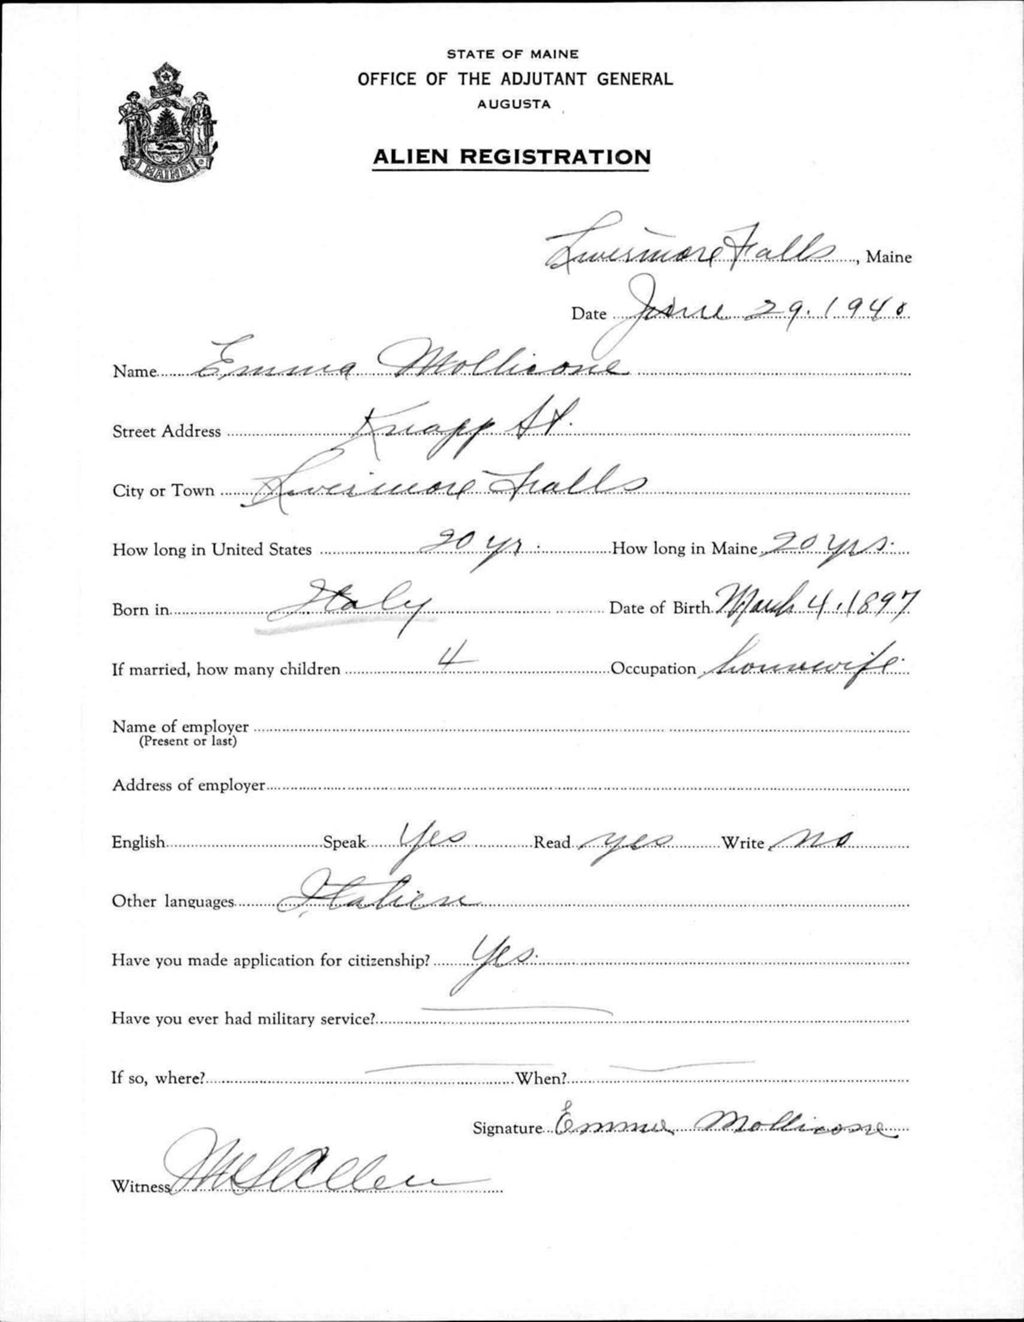 STATE OF MAINE
OFFICE OF THE ADJUTANT GENERAL
AUGUSTA
MAINE
ALIEN REGISTRATION
Livermore Falls, Maine
Date June 29. 1940
Name Emma Mollicone
Street Address Knapp St.
City or Town Livermore Falls
How long in United States 20 yr. How long in Maine 20 yrs.
Born in Italy Date of Birth March 4, 1897
If married, how many children 4 Occupation housewife.
Name of employer
(Present or last)
Address of employer
English Speak Yes Read yes Write no
Other languages Italien
Have you made application for citizenship? Yes.
Have you ever had military service?
If so, where? When?
Signature Emma Mollicone
Witness Allen